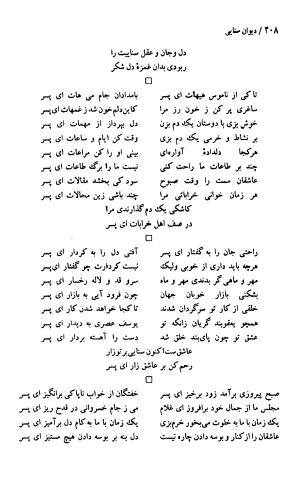 ۴۰۸ / دیوان سنایی
دل و جان و عقل سناییت را
ربودی بدان غمزهٔ دل شکر
تا کی از ناموس هیهات ای پسر
بامدادان جام می هات ای پسر
ساغری پر کن ز خون رز مرا
کاین دلم خون شد ز غمهات ای پسر
خوش بزی با دوستان یک دم بزن
دل بپرداز از مهمات ای پسر
بر نشاط و خرمی یک دم بزی
وقت کن ایام و ساعات ای پسر
هر کجا دلدادهٔ آواره‌ای
بینی او را کن مراعات ای پسر
چند بر طاعات ما راحت کنی
نیست ما را برگ طاعات ای پسر
عاشقان مست را وقت صبوح
سود کی بخشد مقالات ای پسر
هر زمان خوانی خراباتی مرا
چند باشی زین محالات ای پسر
کاشکی یک دم گذارندی مرا
در صف اهل خرابات ای پسر
راحتی جان را به گفتار ای پسر
آفتی دل را به کردار ای پسر
هرچه باید داری از خوبی ولیک
نیست کردارت چو گفتار ای پسر
مهر و ماهی گر بدندی مهر و ماه
سرو قد و لاله رخسار ای پسر
بشکنی بازار خوبان جهان
چون فرود آیی به بازار ای پسر
خلقی از کار تو سرگردان شدند
تا کجا خواهد شدن کار ای پسر
همچو یعقوبند گریان زانکه تو
یوسف عصری به دیدار ای پسر
عشق تو چون پای‌بند خلق شد
دست را آهسته بردار ای پسر
عاشق ست اکنون سنایی بر تو زار
رحم کن بر عاشق زار ای پسر
صبح پیروزی برآمد زود برخیز ای پسر
خفتگان از خواب ناپاکی برانگیز ای پسر
مجلس ما از جمال خود برافروز ای غلام
می ز جام خسروانی در قدح ریز ای پسر
یک زمان با ما به خلوت می بخور خرم بزی
یک زمان با ما به کام دل برآمیز ای پسر
عاشقان را از کنار و بوسه دادن چاره نیست
دل بنه بر بوسه دادن هیچ مستیز ای پسر